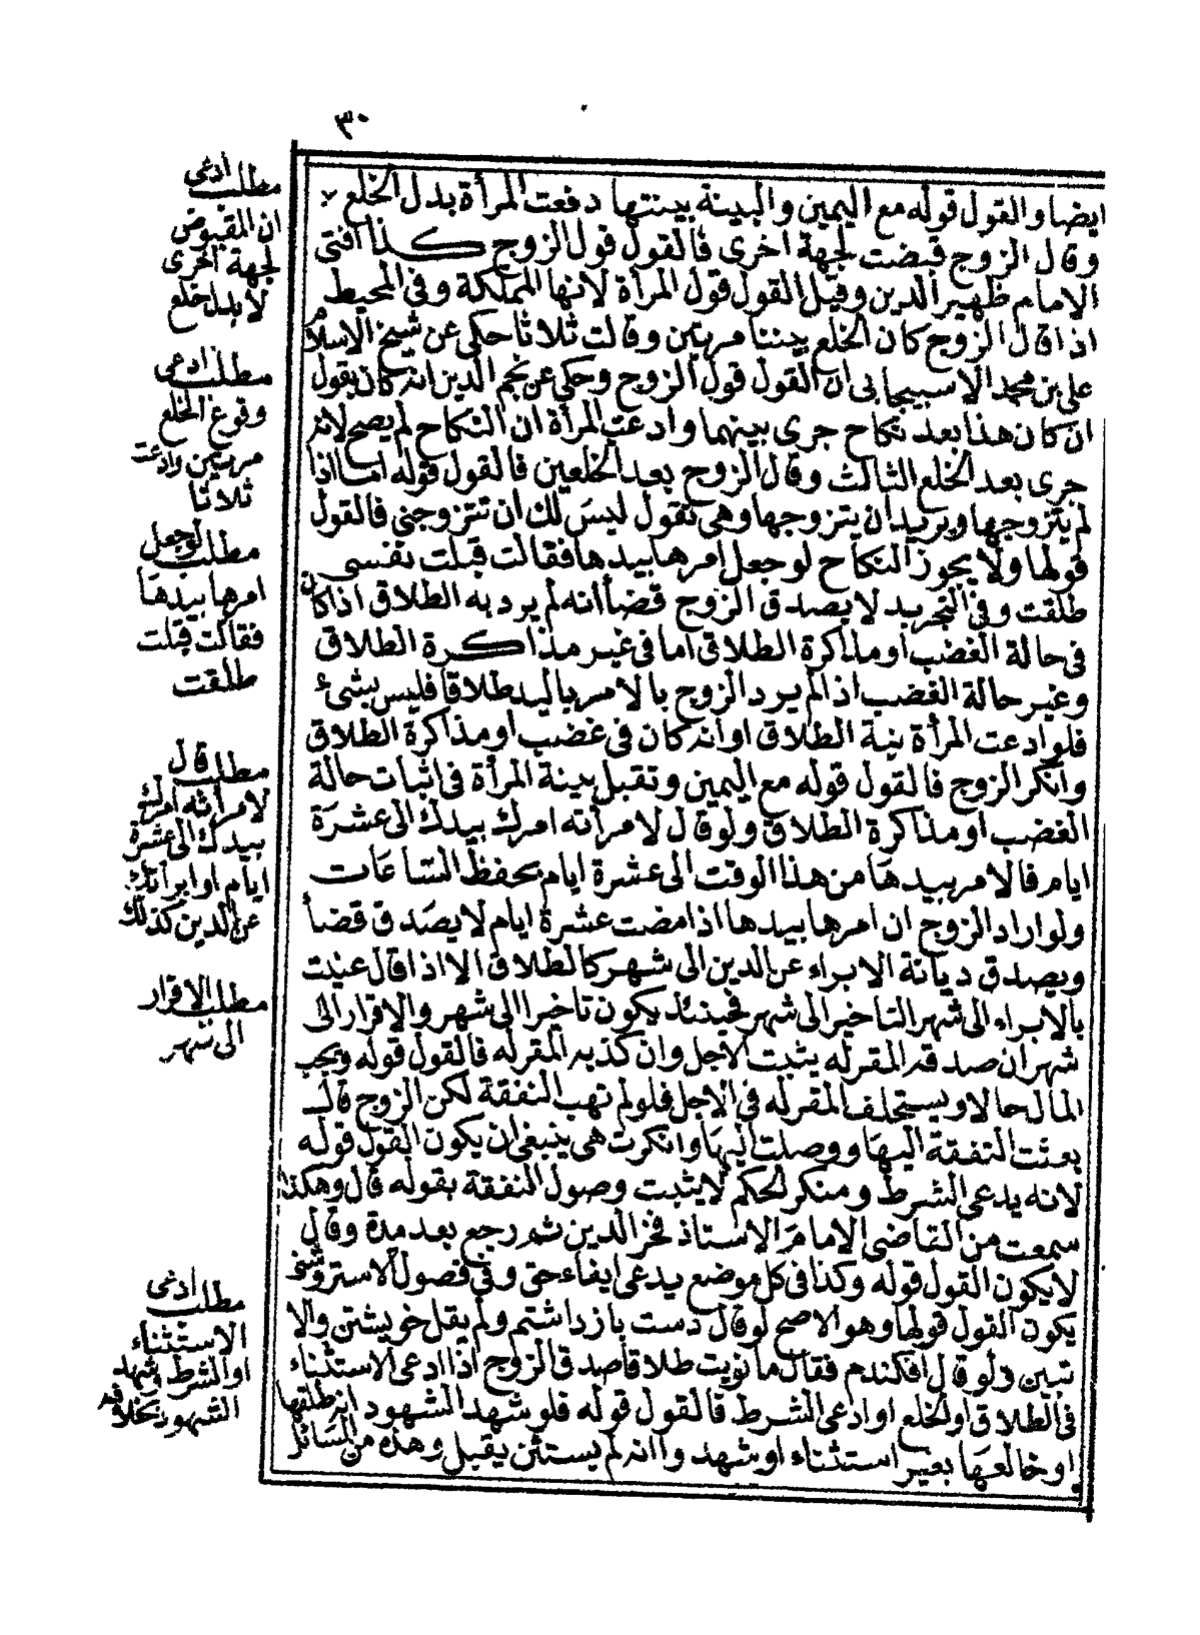 ٣٠
ايضا والقول قوله مع اليمين والبينة بينتها دفعت المرأة بدل الخلع
وقال الزوج قبضت لجهة اخرى فالقول قول الزوج كذا افتى
الامام ظهير الدين وقيل القول قول المرأة لانها المملكة وفى المحيط
اذا قال الزوج كان الخلع بيننا مرتين وقالت ثلاثا حكى عن شيخ الاسلام
على بن محمد الاسبيجابى ان القول قول الزوج وحكى عن نجم الدين انه كان يقول
ان كان هذا بعد نكاح جرى بينهما وادعت المرأة ان النكاح لم يصح لانه
جرى بعد الخلع الثالث وقال الزوج بعد الخلعين فالقول قوله اما اذا
لم يتزوجها ويريد ان يتزوجها وهى تقول ليس لك ان تتزوجنى فالقول
قولها ولا يجوز النكاح لو جعل امرها بيدها فقالت قبلت نفسى
طلقت وفى التجريد لا يصدق الزوج قضأ انه لم يرد به الطلاق اذا كان
فى حالة الغضب او مذاكرة الطلاق اما فى غير مذاكرة الطلاق
وغير حالة الغضب اذا لم يرد الزوج بالامر باليد طلاقا فليس بشئ
فلو ادعت المرأة نية الطلاق او انه كان فى غضب او مذاكرة الطلاق
وانكر الزوج فالقول قوله مع اليمين وتقبل بينة المرأة فى اثبات حالة
الغضب او مذاكرة الطلاق ولو قال لامرأته امرك بيدك الى عشرة
ايام فالامر بيدها من هذا الوقت الى عشرة ايام بحفظ الساعات
ولو اراد الزوج ان امرها بيدها اذا مضت عشرة ايام لا يصدق قضأ
ويصدق ديانة الابراء عن الدين الى شهر كالطلاق الا اذا قال عنيت
بالابراء الى شهر التاخير الى شهر فحينئذ يكون تاخيرا الى شهر والاقرار الى
شهر ان صدقه المقر له يثبت الاجل وان كذبه المقر له فالقول قوله ويجب
المال حالا ويستحلف المقر له فى الاجل فلو لم تهب النفقة لكن الزوج قال
بعثت النفقة اليها ووصلت اليها وانكرت هى ينبغى ان يكون القول قوله
لانه يدعى الشرط ومنكر الحكم لا يثبت وصول النفقة بقوله قال وهكذا
سمعت من القاضى الامام الاستاذ فخر الدين ثم رجع بعد مدة وقال
لا يكون القول قوله وكذا فى كل موضع يدعى ايفاء حق وفى فصول الاستروشنى
يكون القول قولها وهو الاصح لو قال دست باز داشتم ولم يقل خويشتن والا
تبين ولو قال افكندم فقال ما نويت طلاقا صدق الزوج اذا ادعى الاستثناء
فى الطلاق او الخلع او ادعى الشرط فالقول قوله فلو شهد الشهود انه طلقها
او خالعها بغير استثناء او شهد واانه لم يستثن يقبل وهذه من المسائل
مطلب ادعى
ان المقبوض
لجهة اخرى
لا بدل خلع
مطلب ادعى
وقوع الخلع
مرتين وادعت
ثلاثا
مطلب لو جعل
امرها بيدها
فقالت قبلت
طلقت
مطلب قال
لامرأته امرك
بيدك الى عشرة
ايام او ابرأتك
عن الدين كذلك
مطلب الاقرار
الى شهر
مطلب ادعى
الاستثناء
او الشرط وشهد
الشهود بخلافه